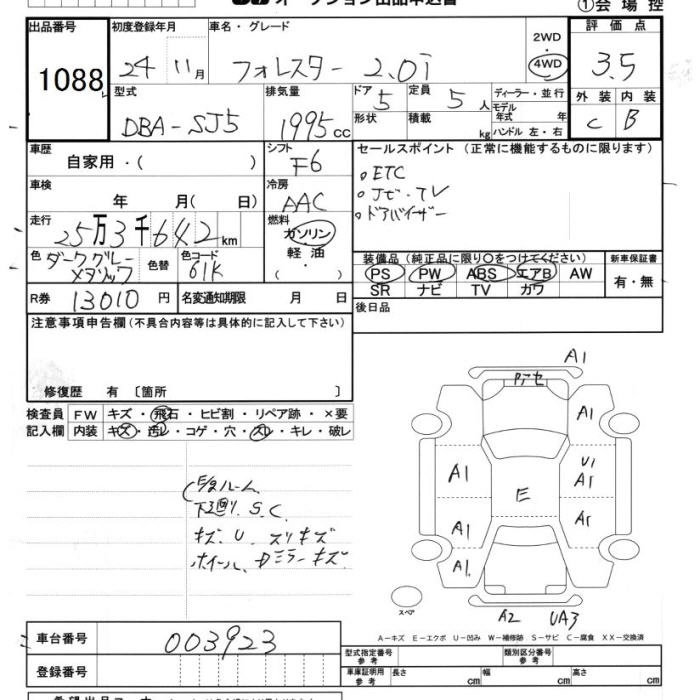 オークション出品申込書
①会場控
出品番号
1088
初度登録年月
24 11月
車名・グレード
フォレスター 2.0i
2WD
4WD
評価点
3.5
型式
DBA-SJ5
排気量
1995 cc
ドア 5
形状
定員 5 人
積載 kg
ディーラー・並行
モデル年式 年
ハンドル 左・右
外装 内装
C B
車歴
自家用・( )
シフト
F6
セールスポイント (正常に機能するものに限ります)
ETC
ナビ・TV
ドアバイザー
車検
年 月( 日)
冷房
AAC
走行
25万3千642km
燃料
ガソリン・
軽油・
( )
色
ダークグレーメタリック
色替
色コード
61K
装備品 (純正品に限り○をつけてください)
PS PW ABS エアB AW
SR ナビ TV カワ
新車保証書
有・無
R券 13010 円
名変通知期限 月 日
後日品
注意事項申告欄(不具合内容等は具体的に記入して下さい)
修復歴 有 〔箇所 〕
検査員
記入欄
FW キズ・飛石・ヒビ割・リペア跡・×要
内装 キズ・汚レ・コゲ・穴・スレ・キレ・破レ
下廻り S.C.
キズ U スリキズ
ホイール、ドミラーキズ
A1
A1
U1
A1
A1
E
A1
A1
A2 UA3
スペア
A-キズ E-エクボ U-凹み W-補修跡 S-サビ C-腐食 XX-交換済
車台番号
003923
登録番号
型式指定番号
参考
類別区分番号
参考
車庫証明用
参考
長さ cm
幅 cm
高さ cm